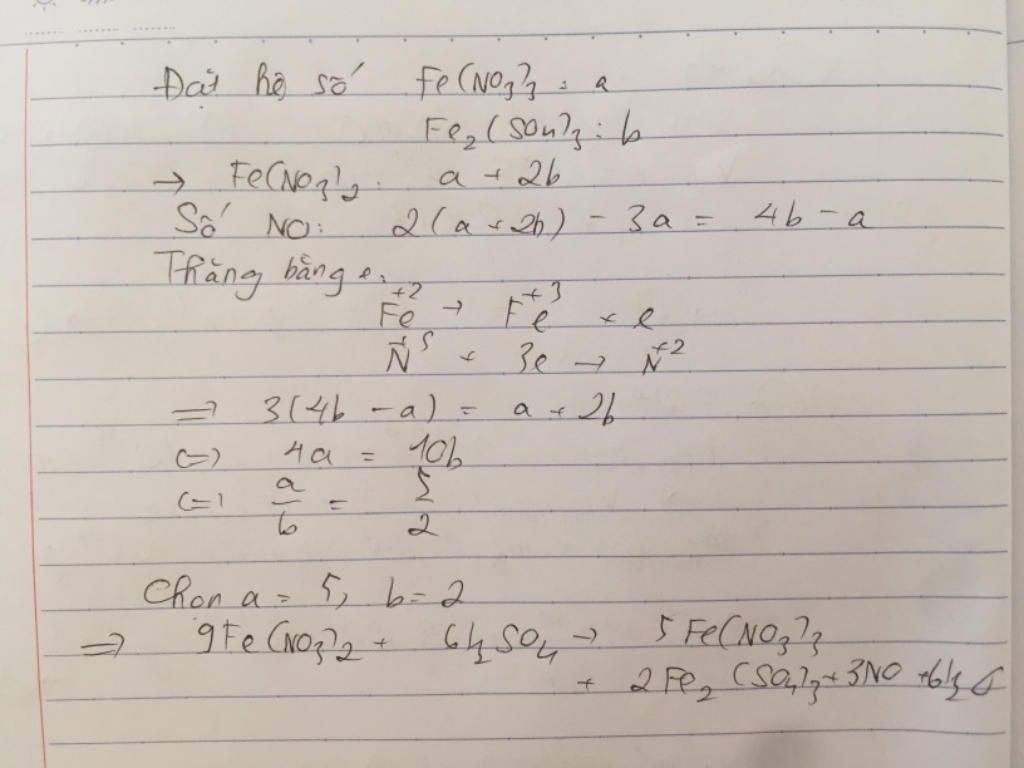 Đặt hệ số Fe(NO3)3 : a
Fe2(SO4)3 : b
→ Fe(NO3)2 : a + 2b
Số NO: 2(a + 2b) - 3a = 4b - a
Thăng bằng e:
Fe^{+2} → Fe^{+3} + e
N^{+5} + 3e → N^{+2}
=> 3(4b - a) = a + 2b
<=> 4a = 10b
<=> a/b = 5/2
Chọn a = 5, b = 2
=> 9Fe(NO3)2 + 6H2SO4 → 5Fe(NO3)3
+ 2Fe2(SO4)3 + 3NO + 6H2O